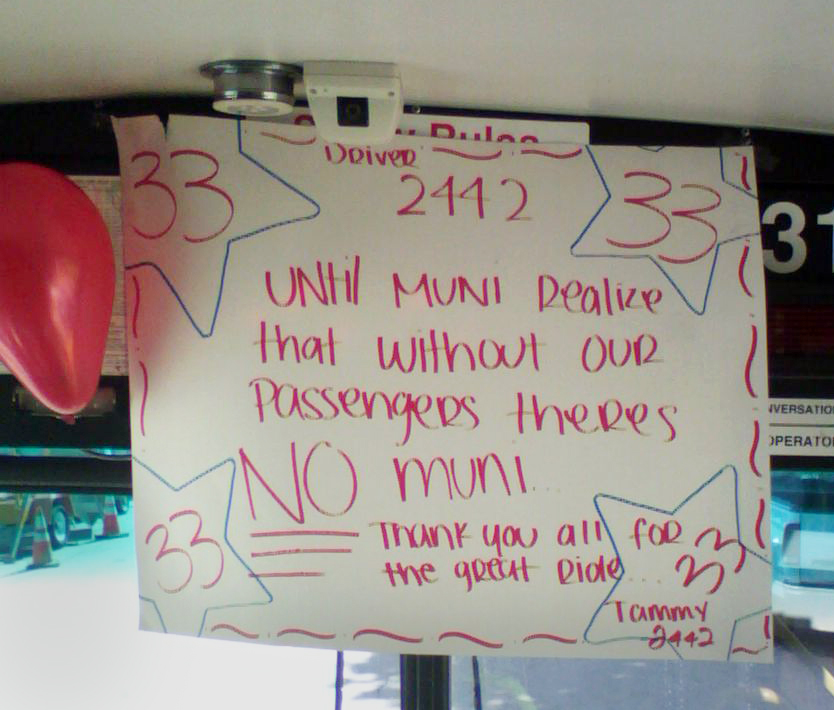 Rules
Driver
33 2442 33
31
UNtil MUNI Realize
that without our
Passengers theres
NO muni..
NVERSATIO
OPERATO
Thank you all for
the great Ride... 33
33
Tammy
2442